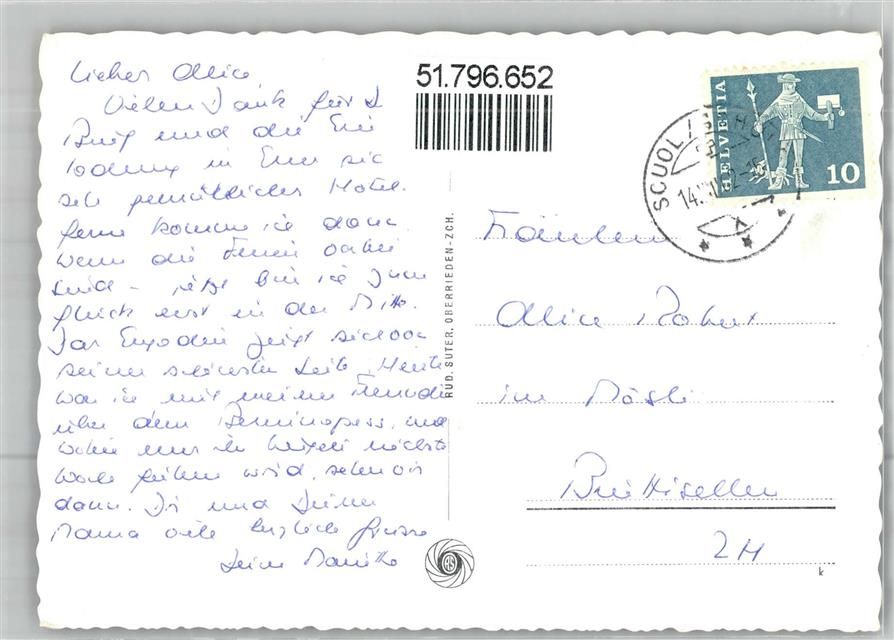 Liebes Alice
Vielen Dank für d.
Brief und die Ein
ladung in Euer sic
sehr gemütliches Hotel.
gerne komme ich dann
wenn die Ferien vorbei
sind - jetzt bin ich zum
Glück erst in der Mitte.
Das Engadin zeigt sich von
seiner schönsten Seite. Heute
war ich mit meinen Freunden
über dem Berninapass, und
wohin uns nächste
Woche führen wird, sehen wir
dann. Dir und Deiner
Mama viele herzliche Grüsse
Deine
51.796.652
RUD. SUTER, OBERRIEDEN-ZCH.
SCUOL/
14.
HELVETIA
10
Fräulein
Alice Robert
im Mösli
Brüttisellen
ZH
k